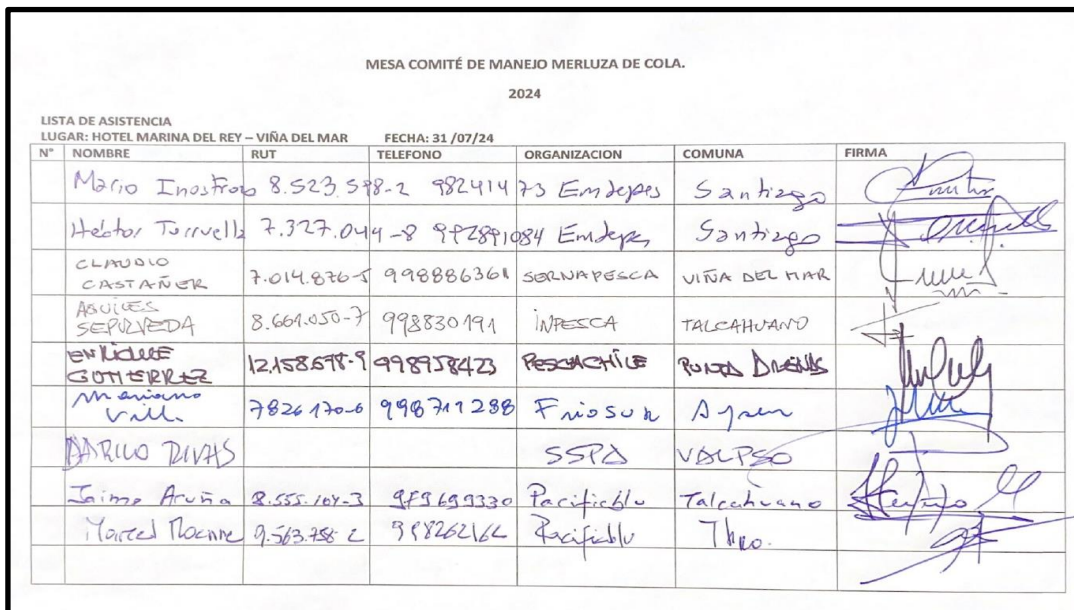 MESA COMITÉ DE MANEJO MERLUZA DE COLA.
2024
LISTA DE ASISTENCIA
LUGAR: HOTEL MARINA DEL REY – VIÑA DEL MAR FECHA: 31 /07/24
N° NOMBRE RUT TELEFONO ORGANIZACION COMUNA FIRMA
Mario 8.523.598-2 98241473 Emdepes Santiago
Hector 7.327.044-8 992891084 Emdepes Santiago
CLAUDIO
CASTAÑER 7.014.876-5 998886361 SERNAPESCA VIÑA DEL MAR
AQUILES
SEPULVEDA 8.661.050-7 998830191 INPESCA TALCAHUANO
ENRIQUE
GUTIERREZ 12.158.698-9 998958423 PESCACHILE PUNTA ARENAS
Mariano
Vill. 7826170-6 998711288 Friosur Aysen
DARIO RIVAS SSPA VALPSO
Jaime Acuña 8.555.104-3 979699330 Pacificblu Talcahuano
Marcel Moenne 9.563.758-2 998262162 Pacificblu Thno.